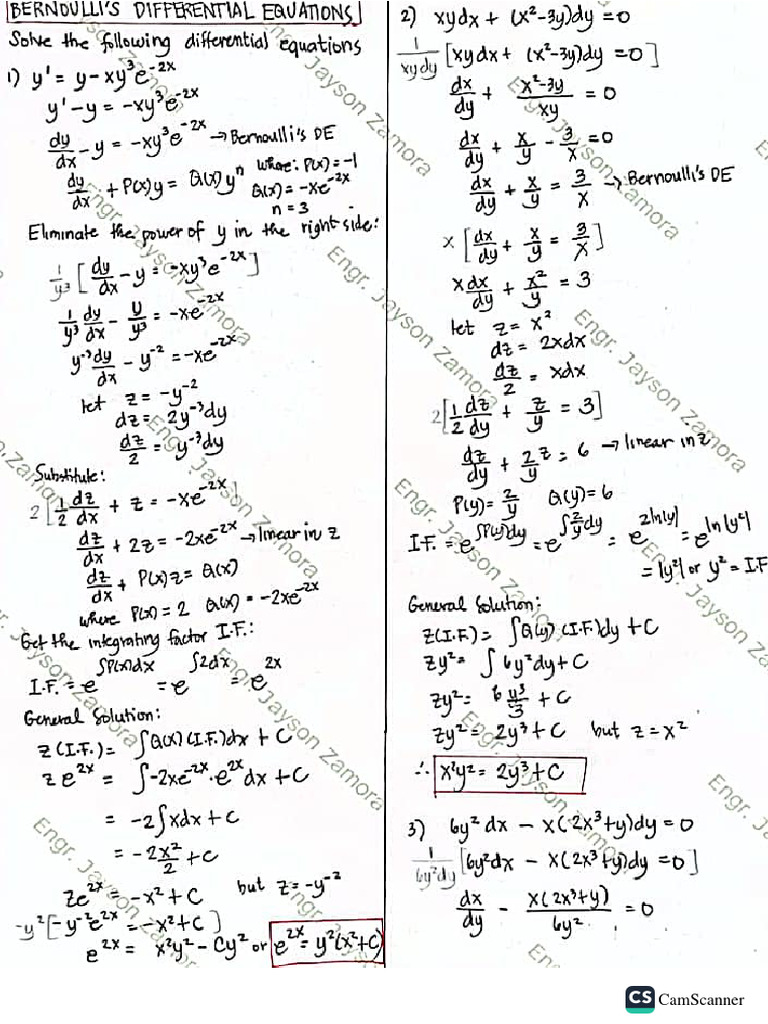 BERNOULLI'S DIFFERENTIAL EQUATIONS
Solve the following differential equations
1) y' = y - xy³e^-2x
y' - y = -xy³e^-2x
dy/dx - y = -xy³e^-2x → Bernoulli's DE
dy/dx + P(x)y = Q(x)yⁿ where: P(x) = -1
Q(x) = -xe^-2x
n = 3
Eliminate the power of y in the right side:
1/y³ [dy/dx - y = -xy³e^-2x]
1/y³ dy/dx - y/y³ = -xe^-2x
y^-3 dy/dx - y^-2 = -xe^-2x
let z = -y^-2
dz = 2y^-3dy
dz/2 = y^-3dy
Substitute:
2 [1/2 dz/dx + z = -xe^-2x]
dz/dx + 2z = -2xe^-2x → linear in z
dz/dx + P(x)z = Q(x)
where P(x) = 2 Q(x) = -2xe^-2x
Get the integrating factor I.F.:
I.F. = e^∫P(x)dx = e^∫2dx = e^2x
General Solution:
z(I.F.) = ∫Q(x)(I.F.)dx + C
ze^2x = ∫-2xe^-2x·e^2x dx + C
= -2∫xdx + C
= -2x²/2 + C
ze^2x = -x² + C but z = -y^-2
-y²[-y^-2e^2x = -x² + C]
e^2x = x²y² - Cy² or e^2x = y²(x²+C)
2) xydx + (x²-3y)dy = 0
1/xydy [xydx + (x²-3y)dy = 0]
dx/dy + x²-3y/xy = 0
dx/dy + x/y - 3/x = 0
dx/dy + x/y = 3/x → Bernoulli's DE
x [dx/dy + x/y = 3/x]
xdx/dy + x²/y = 3
let z = x²
dz = 2xdx
dz/2 = xdx
2[1/2 dz/dy + z/y = 3]
dz/dy + 2/y z = 6 → linear in z
P(y) = 2/y Q(y) = 6
I.F. = e^∫P(y)dy = e^∫2/y dy = e^2ln|y| = e^ln|y²|
= |y²| or y² = I.F
General Solution:
z(I.F.) = ∫Q(y)(I.F.)dy + C
zy² = ∫6y²dy + C
zy² = 6y³/3 + C
zy² = 2y³ + C but z = x²
∴ x²y² = 2y³ + C
3) 6y²dx - x(2x³+y)dy = 0
1/6y²dy [6y²dx - x(2x³+y)dy = 0]
dx/dy - x(2x³+y)/6y² = 0
Engr. Jayson Zamora
CS CamScanner